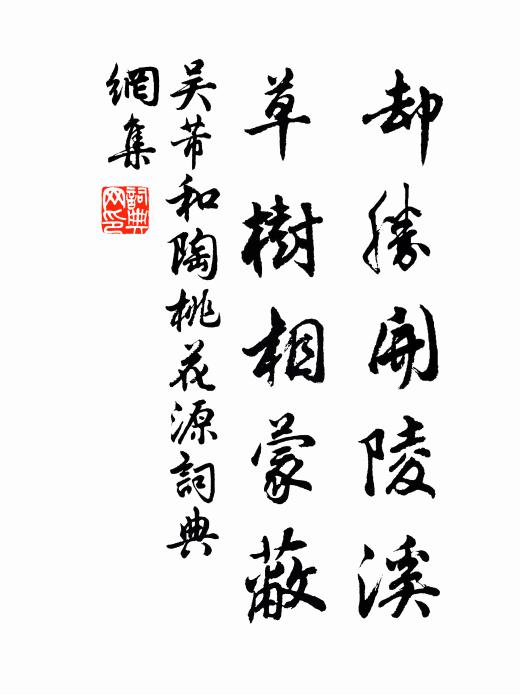 却勝開陵溪
草樹相蒙蔽
吴芾和陶桃花源詞典
網集
詞典網印